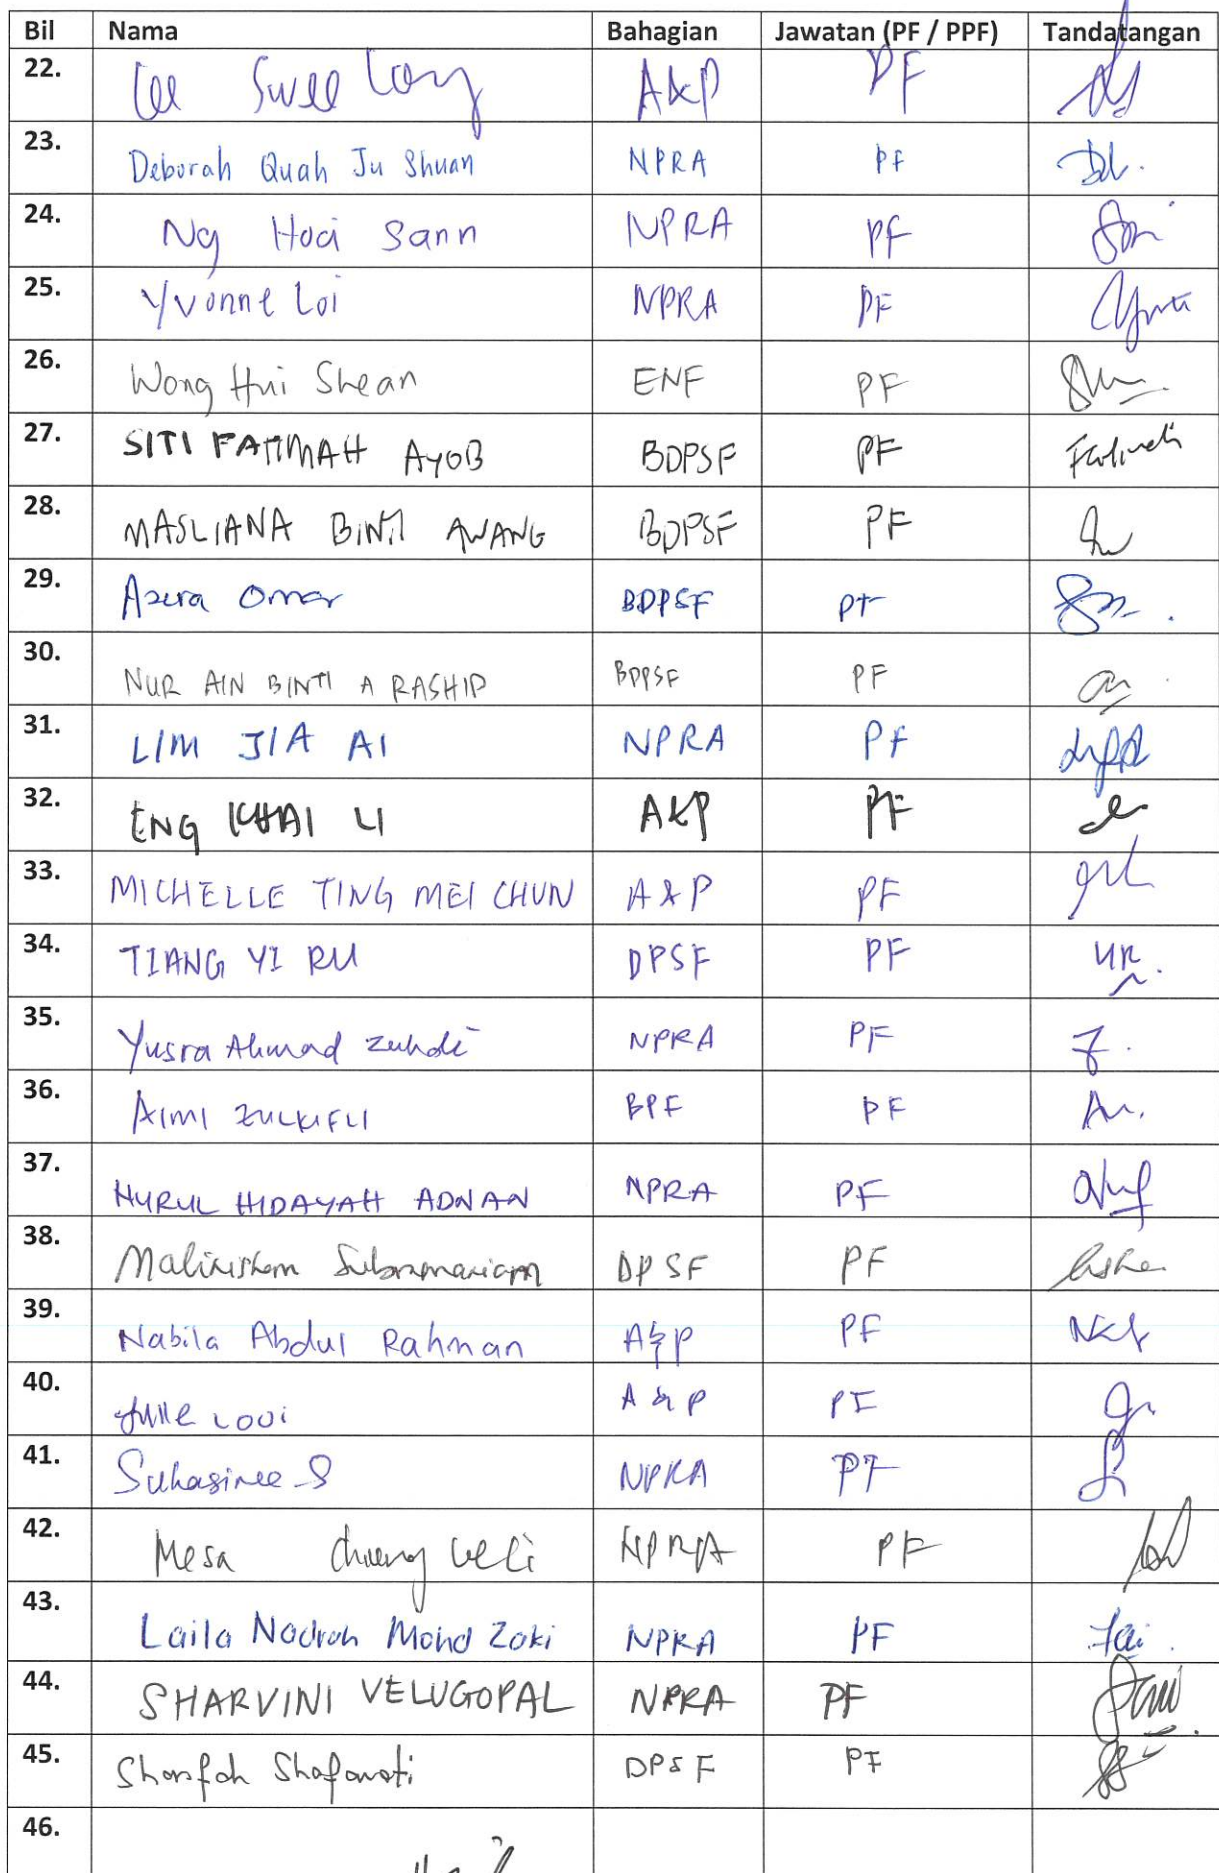 Bil Nama Bahagian Jawatan (PF / PPF) Tandatangan
22. Lee Swee A&P PF
23. Deborah Quah Ju Shuan NPRA PF
24. Ng Hoci Sann NPRA PF
25. Yvonne Loi NPRA PF
26. Wong Hui Shean ENF PF
27. SITI FATIMAH AYOB BDPSF PF
28. MASLIANA BINTI AWANG BDPSF PF
29. Azura Omar BDPSF PF
30. NUR AIN BINTI A RASHID BDPSF PF
31. LIM JIA AI NPRA PF
32. ENG KHAI LI A&P PF
33. MICHELLE TING MEI CHUN A&P PF
34. TIANG YI RU DPSF PF YR
35. Yusra Ahmad Zuhdi NPRA PF
36. AIMI ZULKIFLI BPF PF
37. NURUL HIDAYAH ADNAN NPRA PF
38. DPSF PF
39. Nabila Abdul Rahman A&P PF
40. Looi A&P PF
41. Suhasinee S NPRA PF
42. Mesa NPRA PF
43. Laila Nadrah Mohd Zaki NPRA PF
44. SHARVINI VELUGOPAL NPRA PF
45. DPSF PF
46.